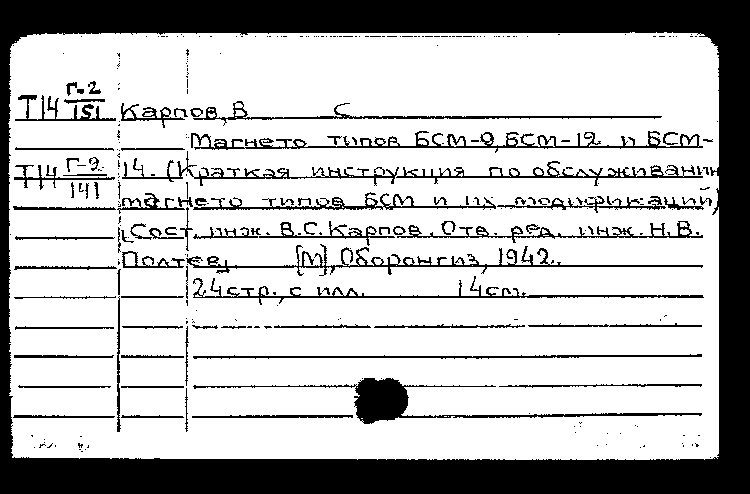 Т14 Г-2/151 Карпов, В С
Магнето типов БСМ-9, БСМ-12 и БСМ-
Т14 Г-2/141 14. (Краткая инструкция по обслуживанию
магнето типов БСМ и их модификаций)
[Сост. инж. В.С. Карпов. Отв. ред. инж. Н.В.
Полтев] [М], Оборонгиз, 1942.
24 стр., с илл. 14 см.